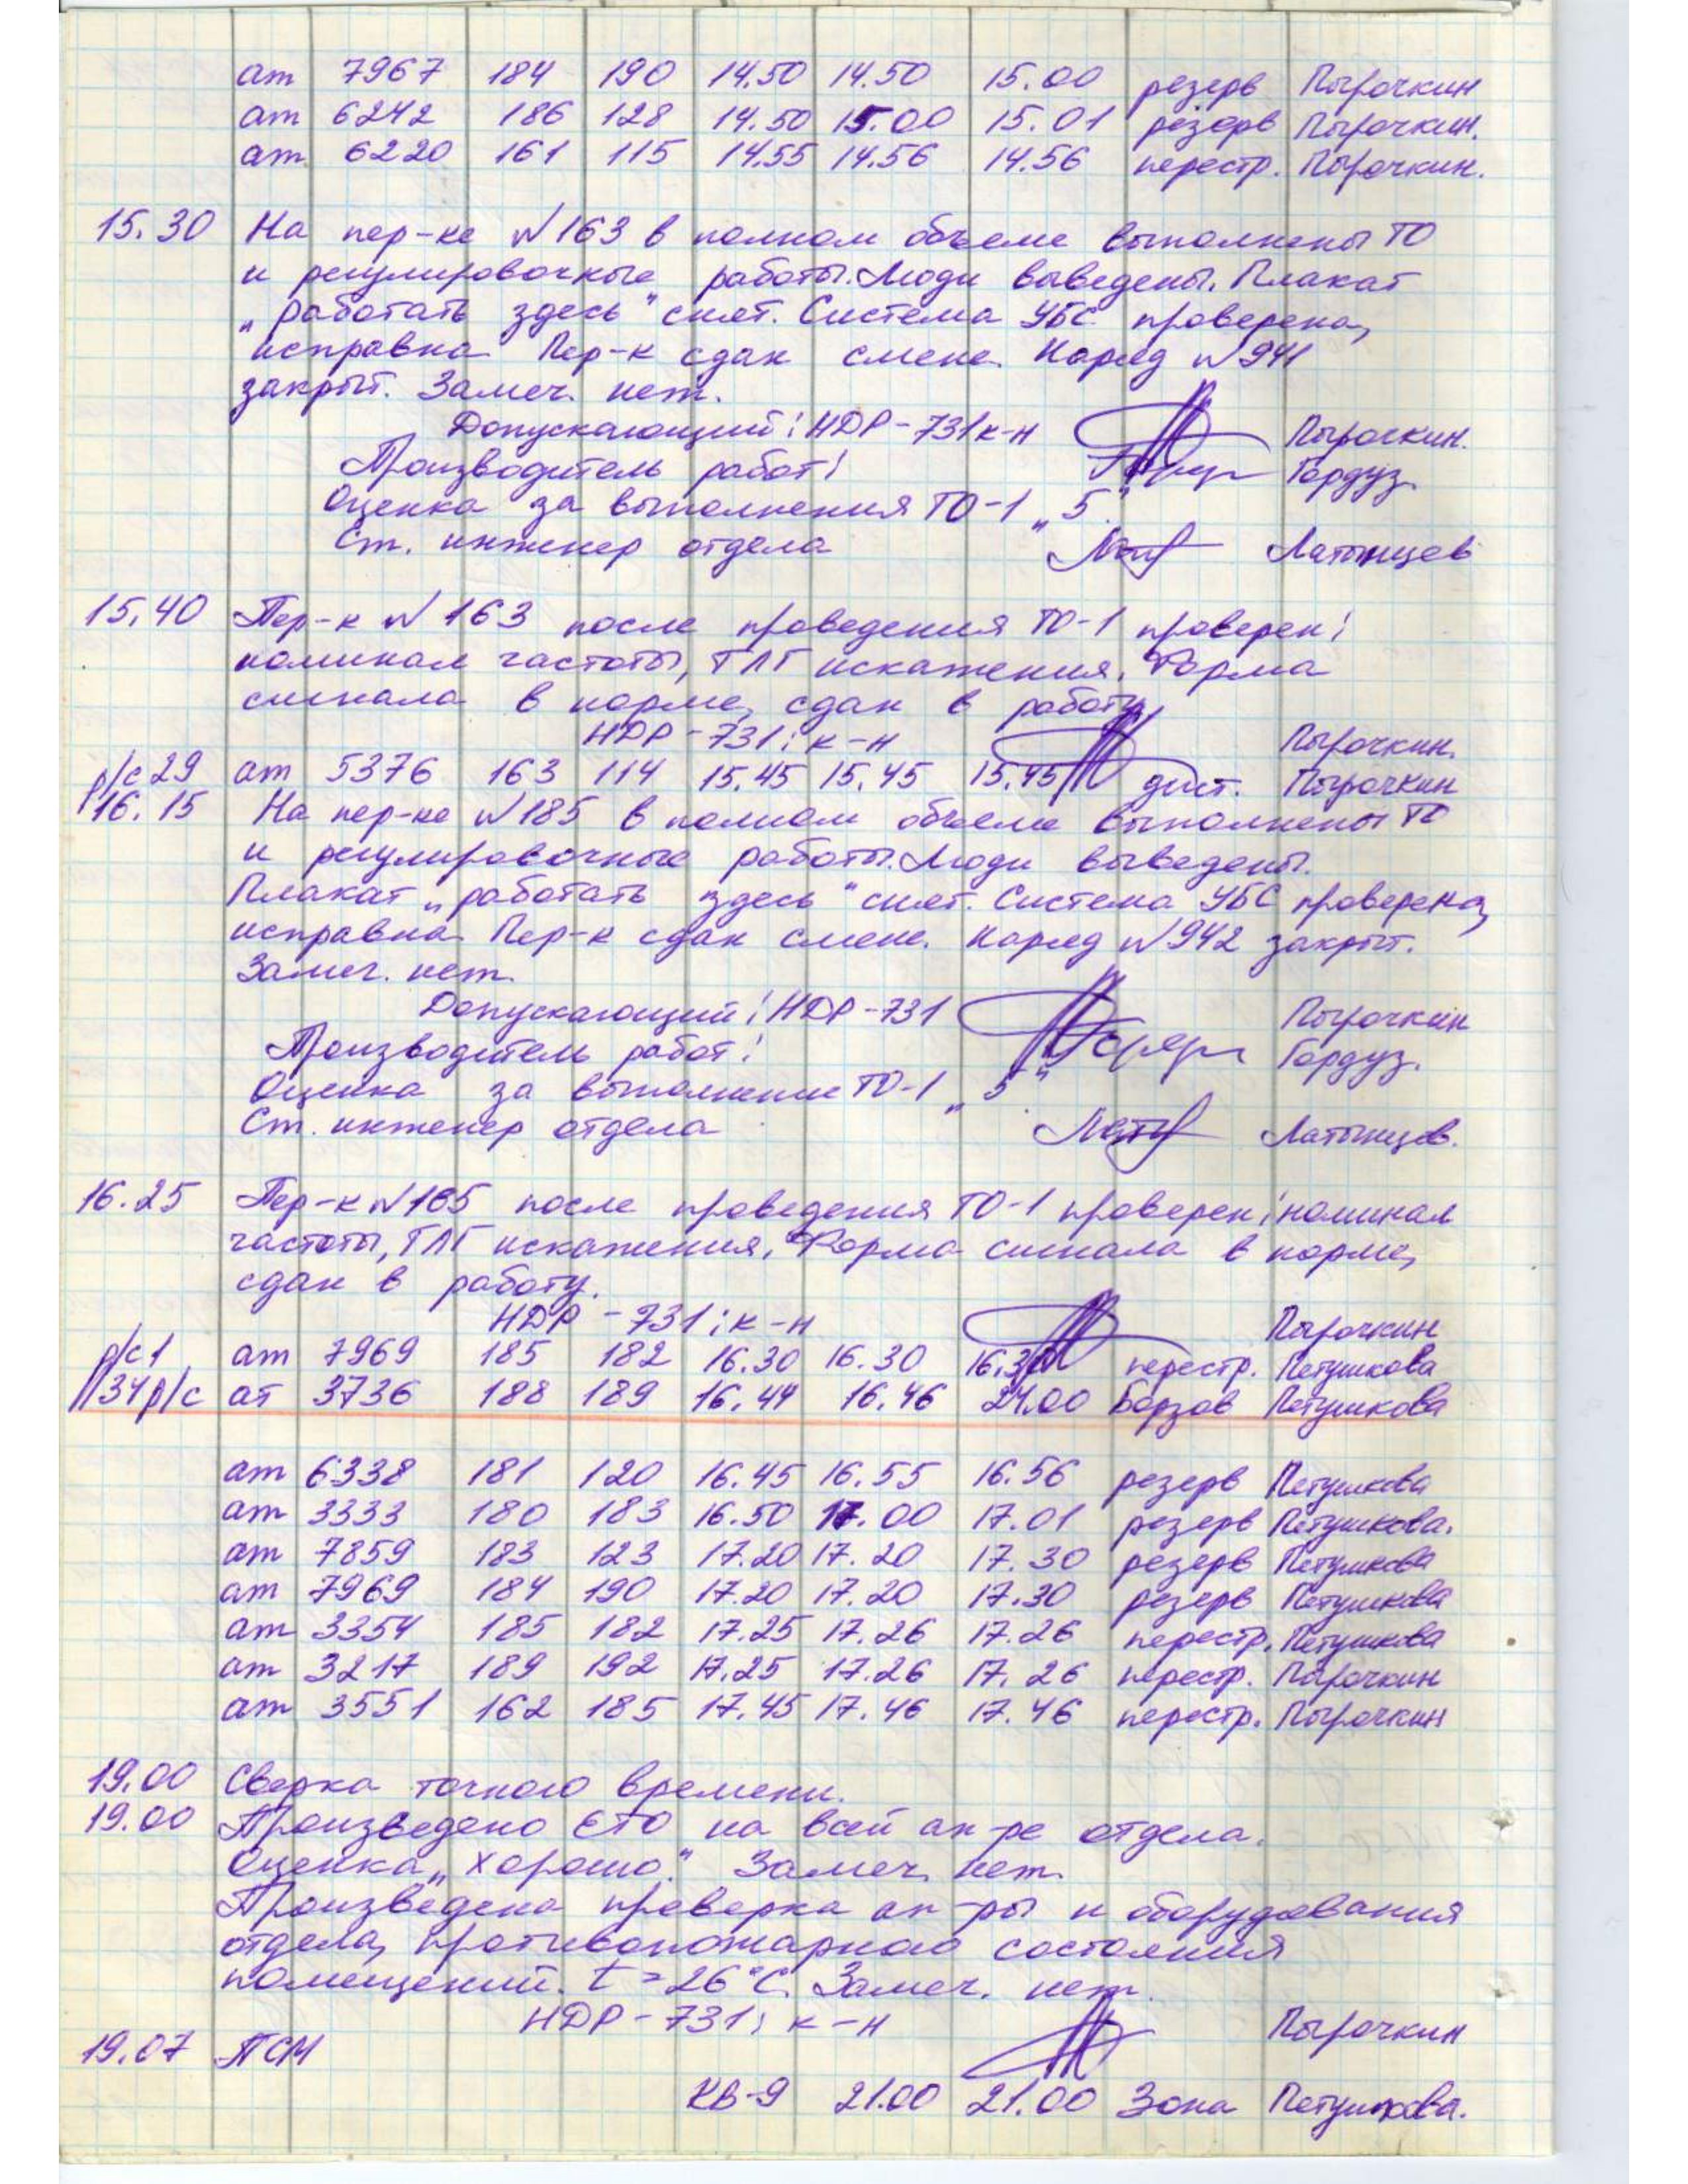 ат 7967 184 190 14.50 14.50 15.00 резерв Пырочкин
ат 6242 186 128 14.50 15.00 15.01 резерв Пырочкин.
ат 6220 161 115 14.55 14.56 14.56 перестр. Пырочкин.
15.30 На пер-ке №163 в полном объеме выполнены ТО
и регулировочные работы. Люди выведены. Плакат
„работать здесь" снят. Система УБС проверена,
исправна. Пер-к сдан смене. Наряд №941
закрыт. Замеч. нет.
Допускающий: НДР-731 к-н Пырочкин.
Производитель работ: Гордуз.
Оценка за выполнения ТО-1 „5"
Ст. инженер отдела Латынцев
15.40 Пер-к №163 после проведения ТО-1 проверен:
номинал частоты, ТЛГ искажения. Форма
сигнала в норме, сдан в работу.
НДР-731: к-н Пырочкин.
р/с 29 ат 5376 163 114 15.45 15.45 15.45 дист. Пырочкин
16.15 На пер-ке №185 в полном объеме выполнены ТО
и регулировочные работы. Люди выведены.
Плакат „работать здесь" снят. Система УБС проверена,
исправна. Пер-к сдан смене. Наряд №942 закрыт.
Замеч. нет.
Допускающий: НДР-731 Пырочкин
Производитель работ: Гордуз.
Оценка за выполнение ТО-1 „5"
Ст. инженер отдела Латынцев.
16.25 Пер-к №185 после проведения ТО-1 проверен: номинал
частоты, ТЛГ искажения. Форма сигнала в норме,
сдан в работу.
НДР-731: к-н Пырочкин
р/с 1 ат 7969 185 182 16.30 16.30 16.30 перестр. Петушкова
34 р/с ат 3736 188 189 16.44 16.46 24.00 Борзов Петушкова
ат 6338 181 120 16.45 16.55 16.56 резерв Петушкова
ат 3333 180 183 16.50 17.00 17.01 резерв Петушкова.
ат 7859 183 123 17.20 17.20 17.30 резерв Петушкова
ат 7969 184 190 17.20 17.20 17.30 резерв Петушкова
ат 3354 185 182 17.25 17.26 17.26 перестр. Петушкова
ат 3217 189 192 17.25 17.26 17.26 перестр. Пырочкин
ат 3551 162 185 17.45 17.46 17.46 перестр. Пырочкин
19.00 Сверка точного времени.
19.00 Произведено ЕТО на всей ап-ре отдела.
Оценка „хорошо". Замеч. нет.
Произведена проверка ап-ры и оборудования
отдела, противопожарного состояния
помещений. t = 26°С. Замеч. нет.
НДР-731: к-н Пырочкин
19.07 ПСМ
КВ-9 21.00 21.00 Зона Петушкова.